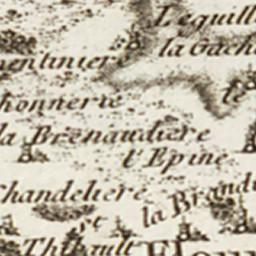 Lequill
la Gach
entiniere
le
honnerie
la Brenaudiere
l'Epine
Chandeliere
la Brand
rt
Thibault